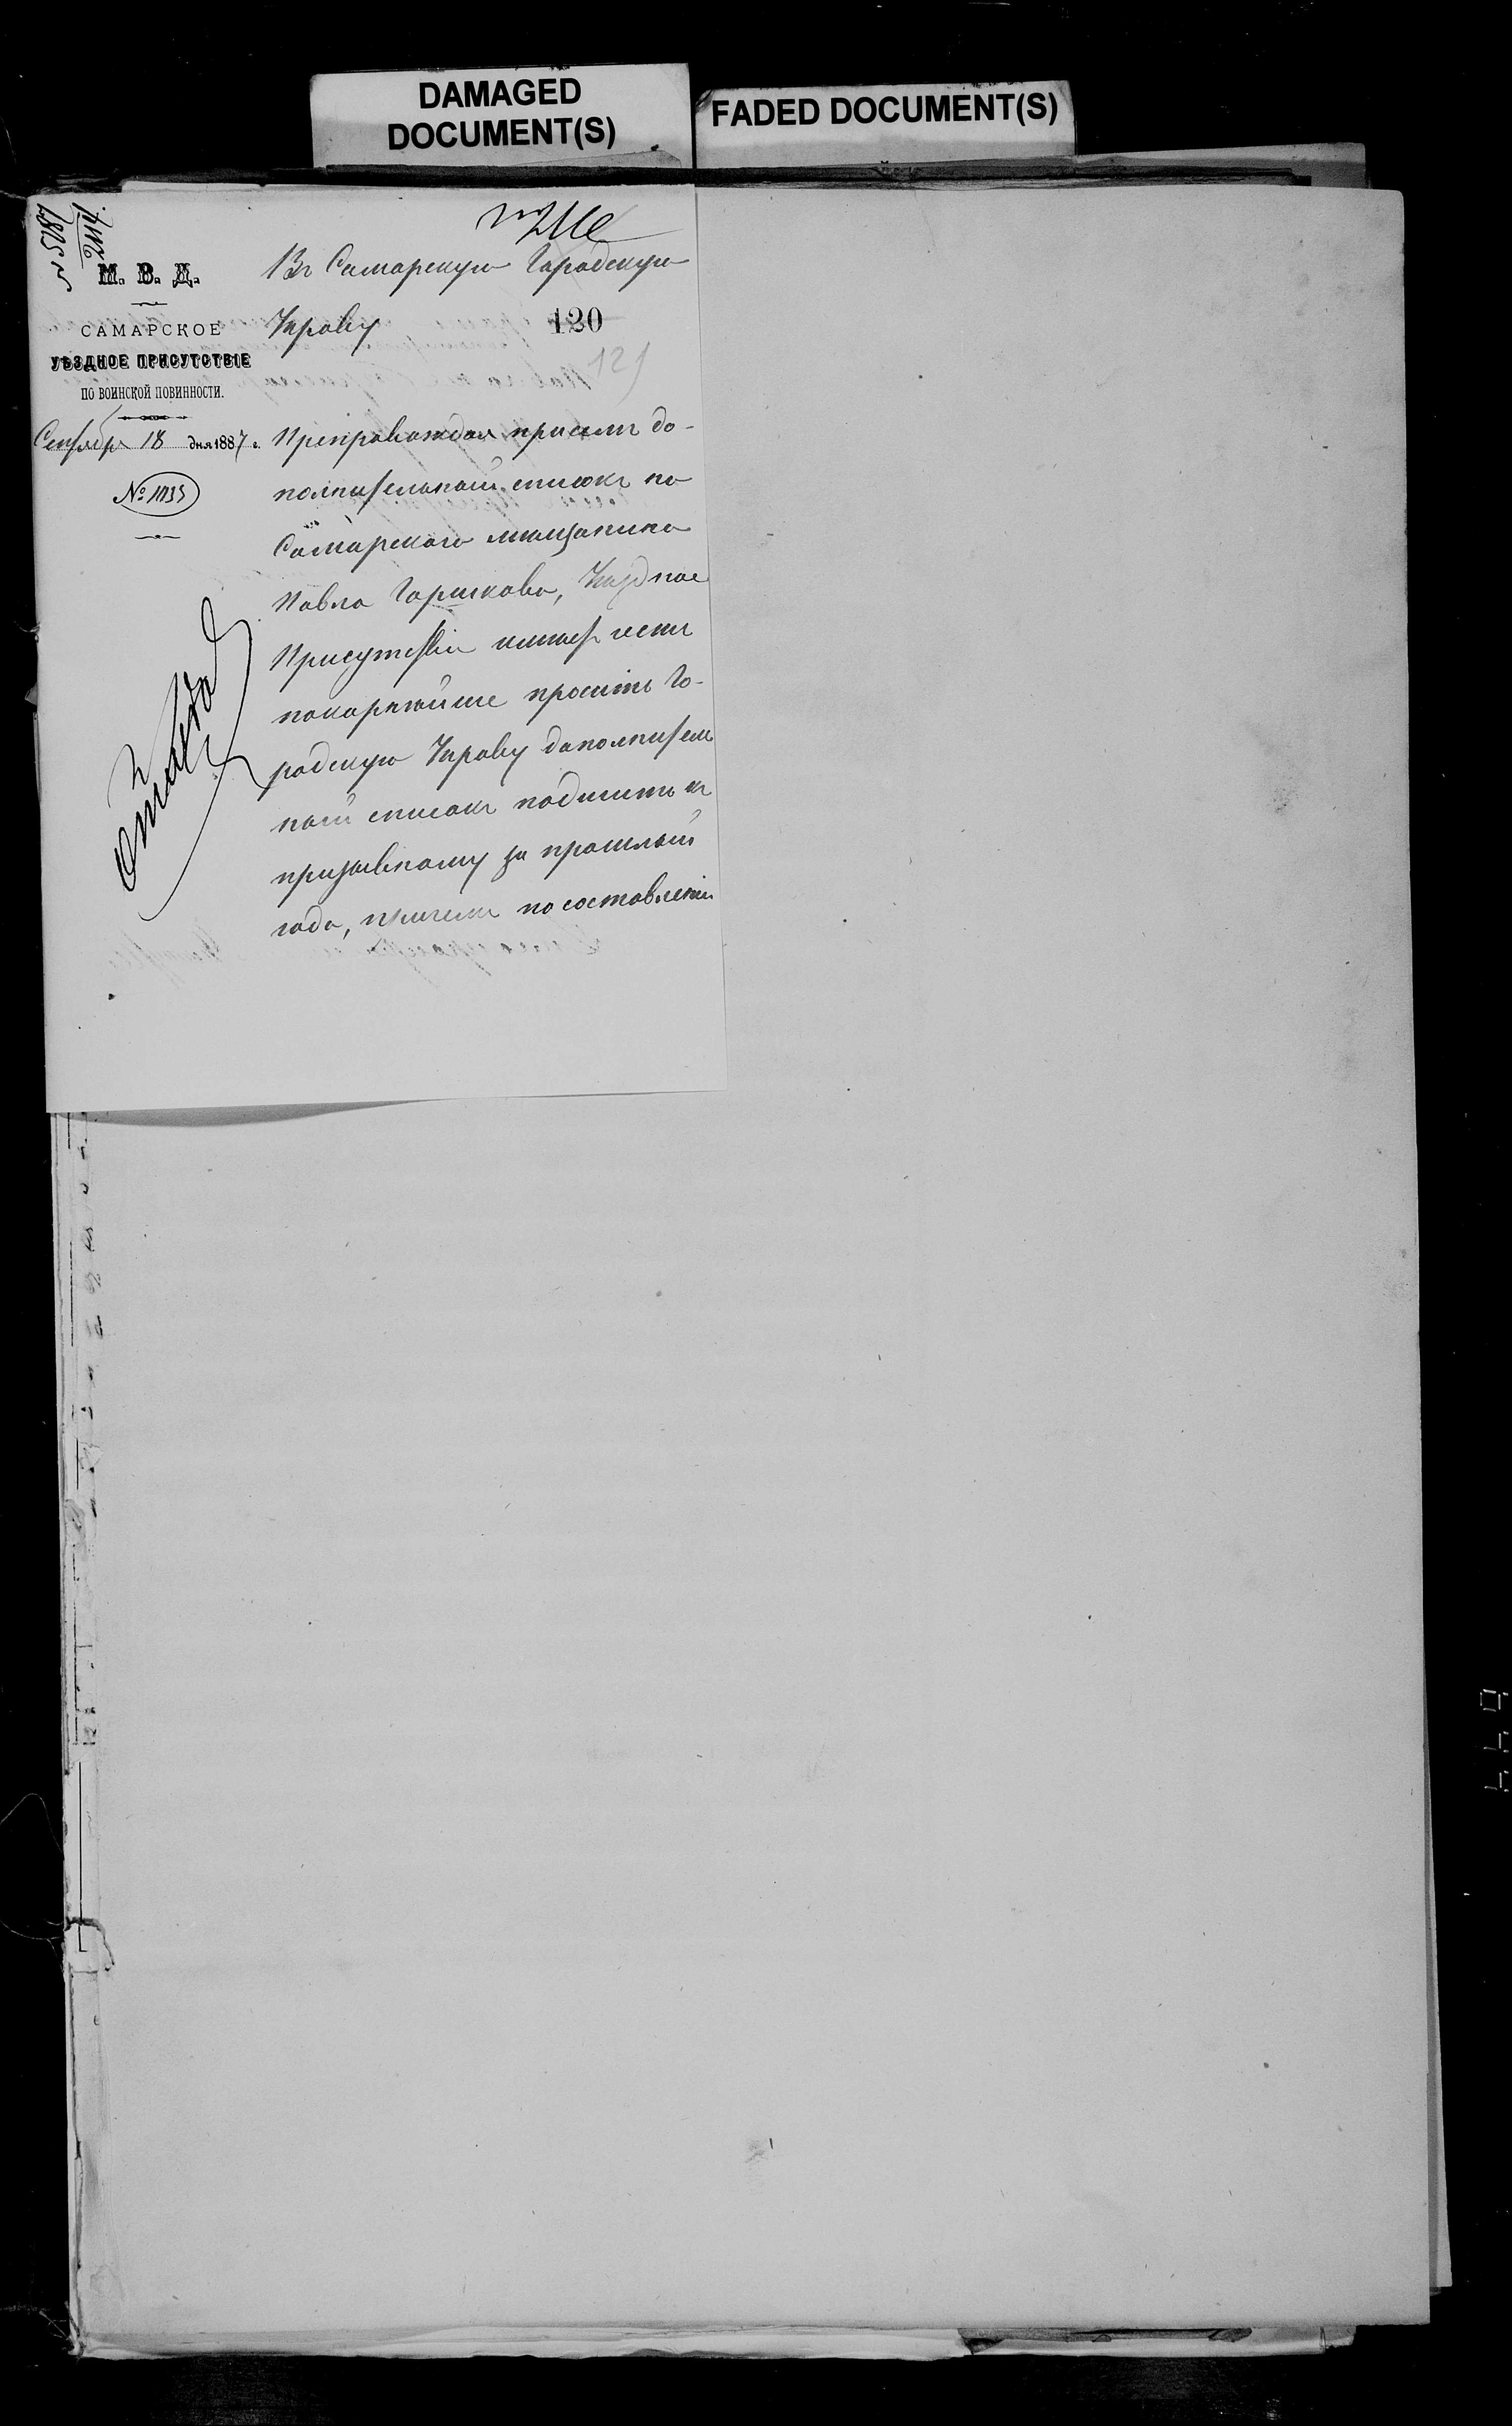 DAMAGED
DOCUMENT(S)
FADED DOCUMENT(S)
М. В. Д.
САМАРСКОЕ
УѢЗДНОЕ ПРИСУТСТВІЕ
ПО ВОИНСКОЙ ПОВИННОСТИ.
Сентября 18 дня 1887 г.
Въ Самарскую Городскую
Управу
120
121
Препровождая присемъ до-
полнительный списокъ на
Самарского мещанина
Павла Горшкова, Уѣздное
Присутствіе имѣетъ честь
покорнѣйше просить Го-
родскую Управу дополнитель
ный списокъ подшить къ
призывному за прошлый
года, по составленіи